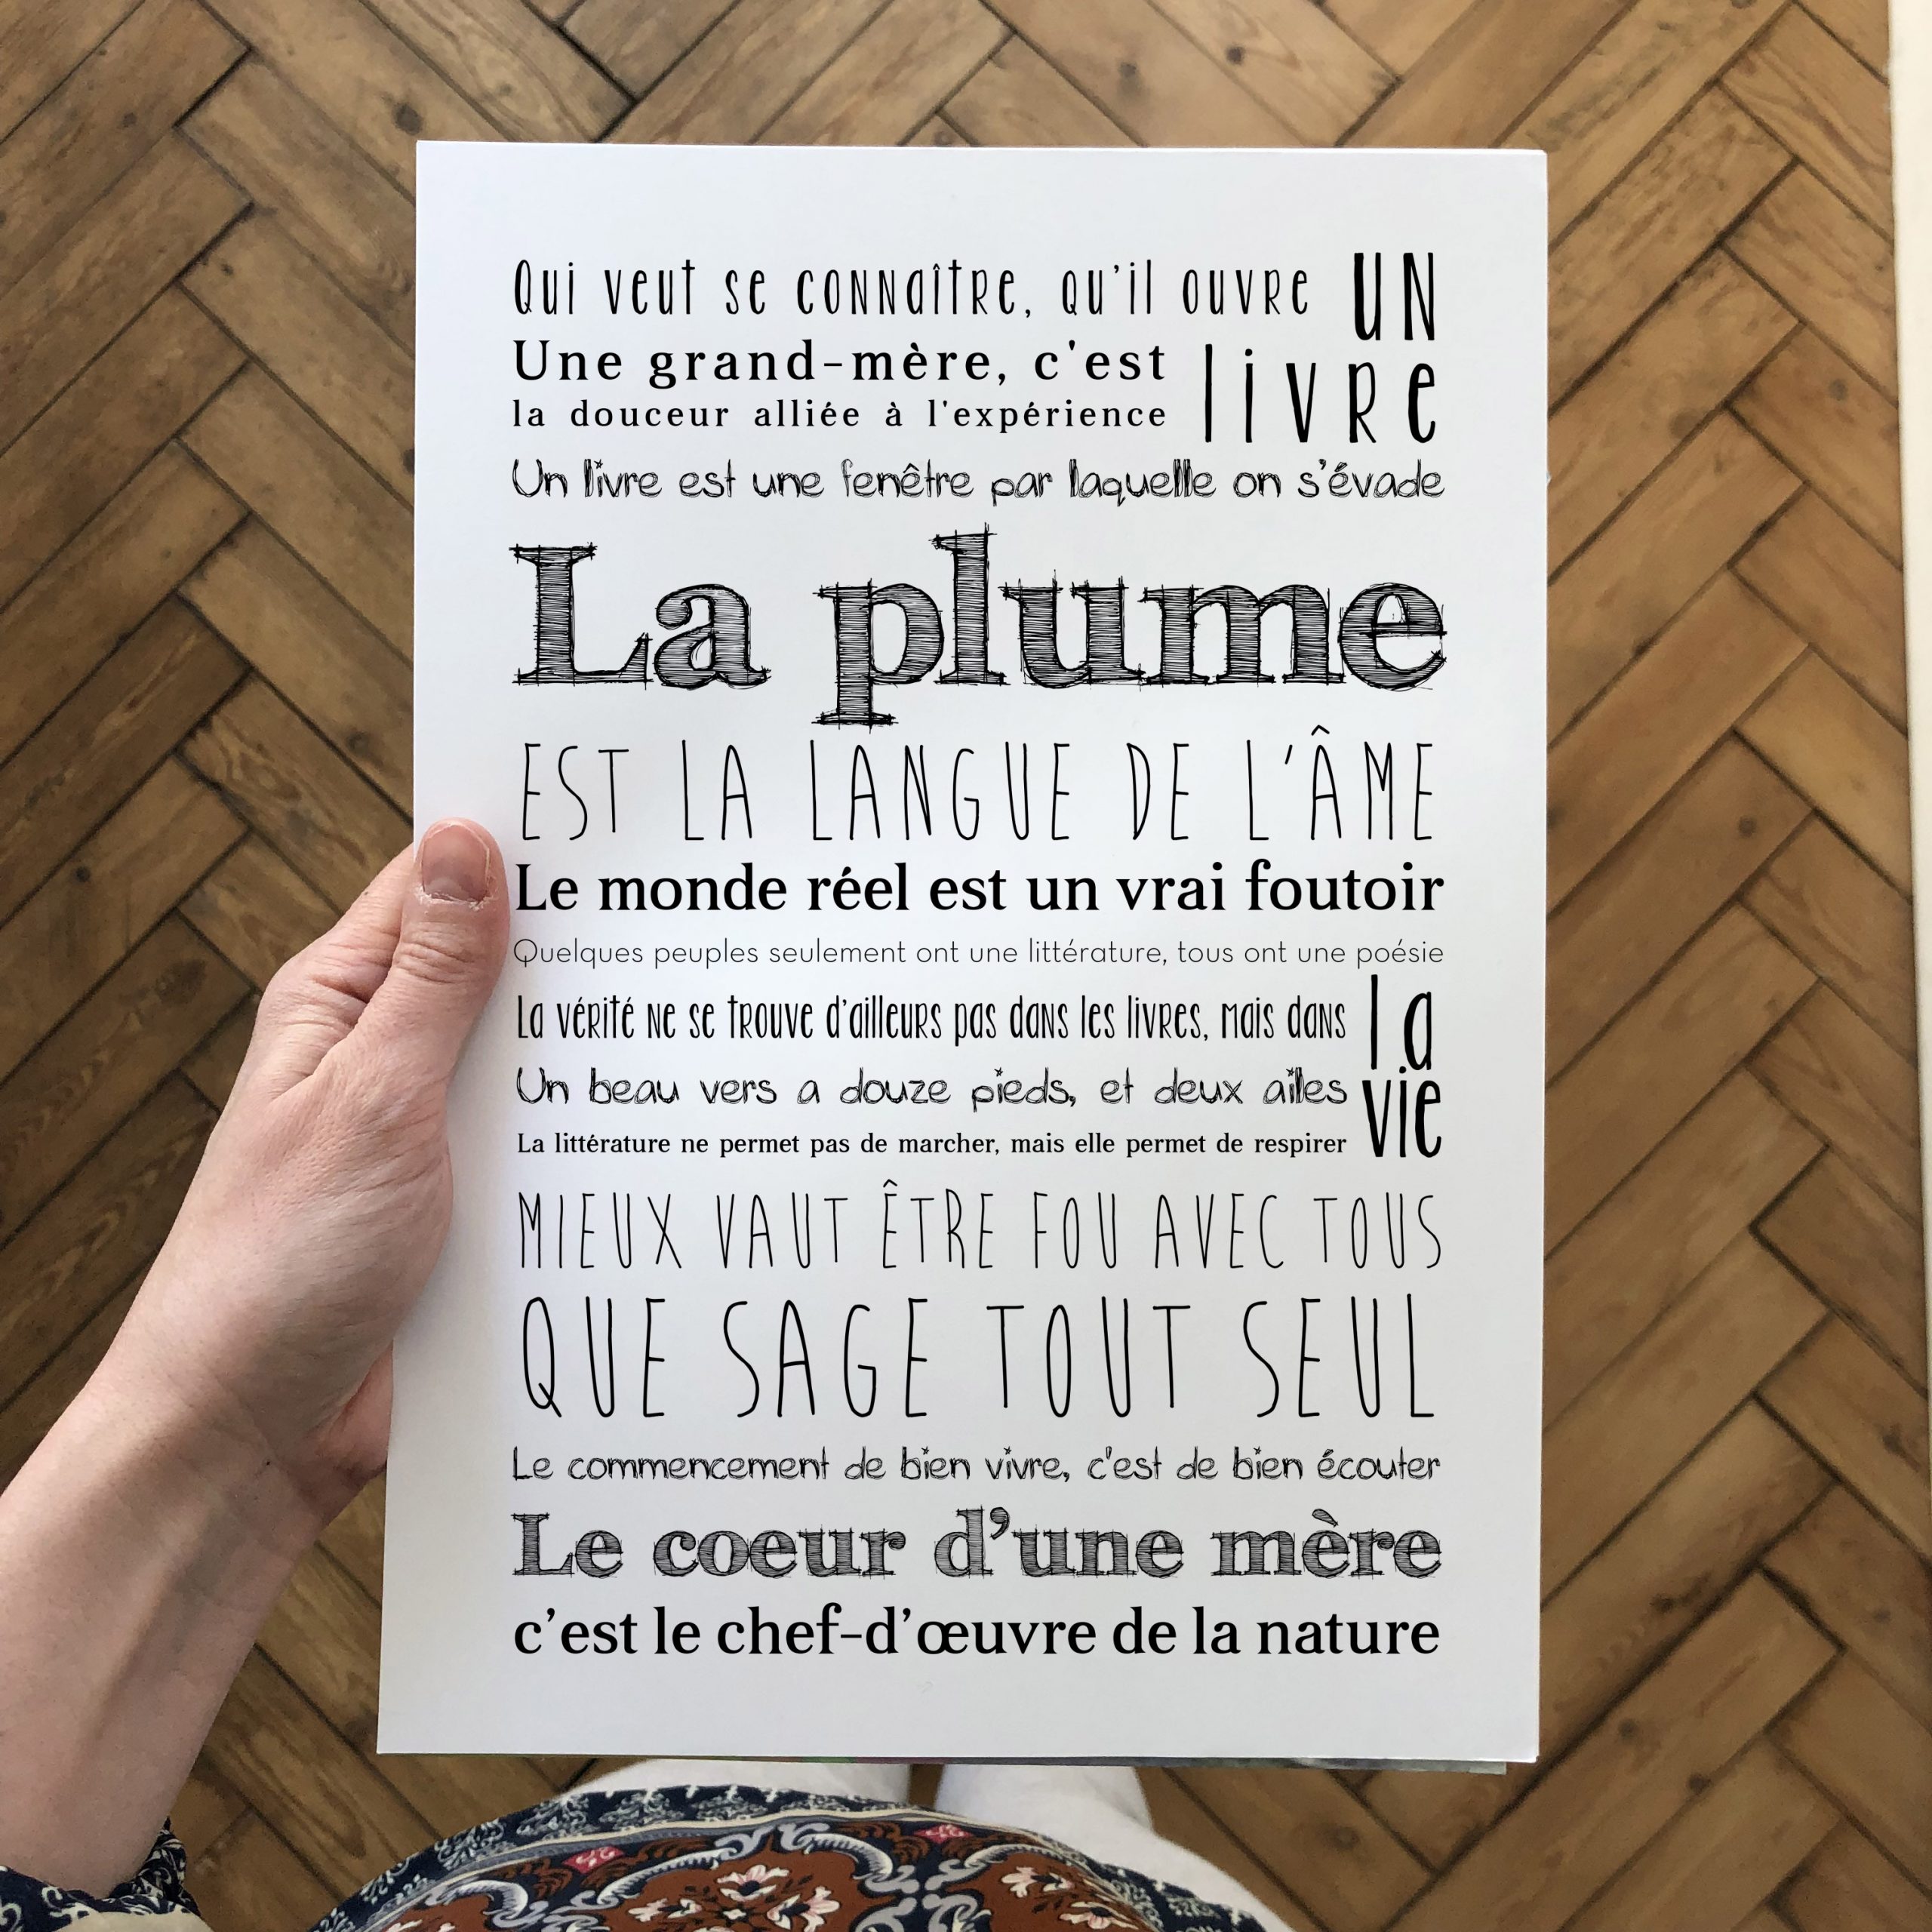 Qui veut se connaître, qu'il ouvre UN
livre
Une grand-mère, c'est
la douceur alliée à l'expérience
Un livre est une fenêtre par laquelle on s'évade
La plume
EST LA LANGUE DE L'ÂME
Le monde réel est un vrai foutoir
Quelques peuples seulement ont une littérature, tous ont une poésie
La vérité ne se trouve d'ailleurs pas dans les livres, mais dans la
vie
Un beau vers a douze pieds, et deux ailes
La littérature ne permet pas de marcher, mais elle permet de respirer
MIEUX VAUT ÊTRE FOU AVEC TOUS
QUE SAGE TOUT SEUL
Le commencement de bien vivre, c'est de bien écouter
Le coeur d'une mère
c'est le chef-d'œuvre de la nature